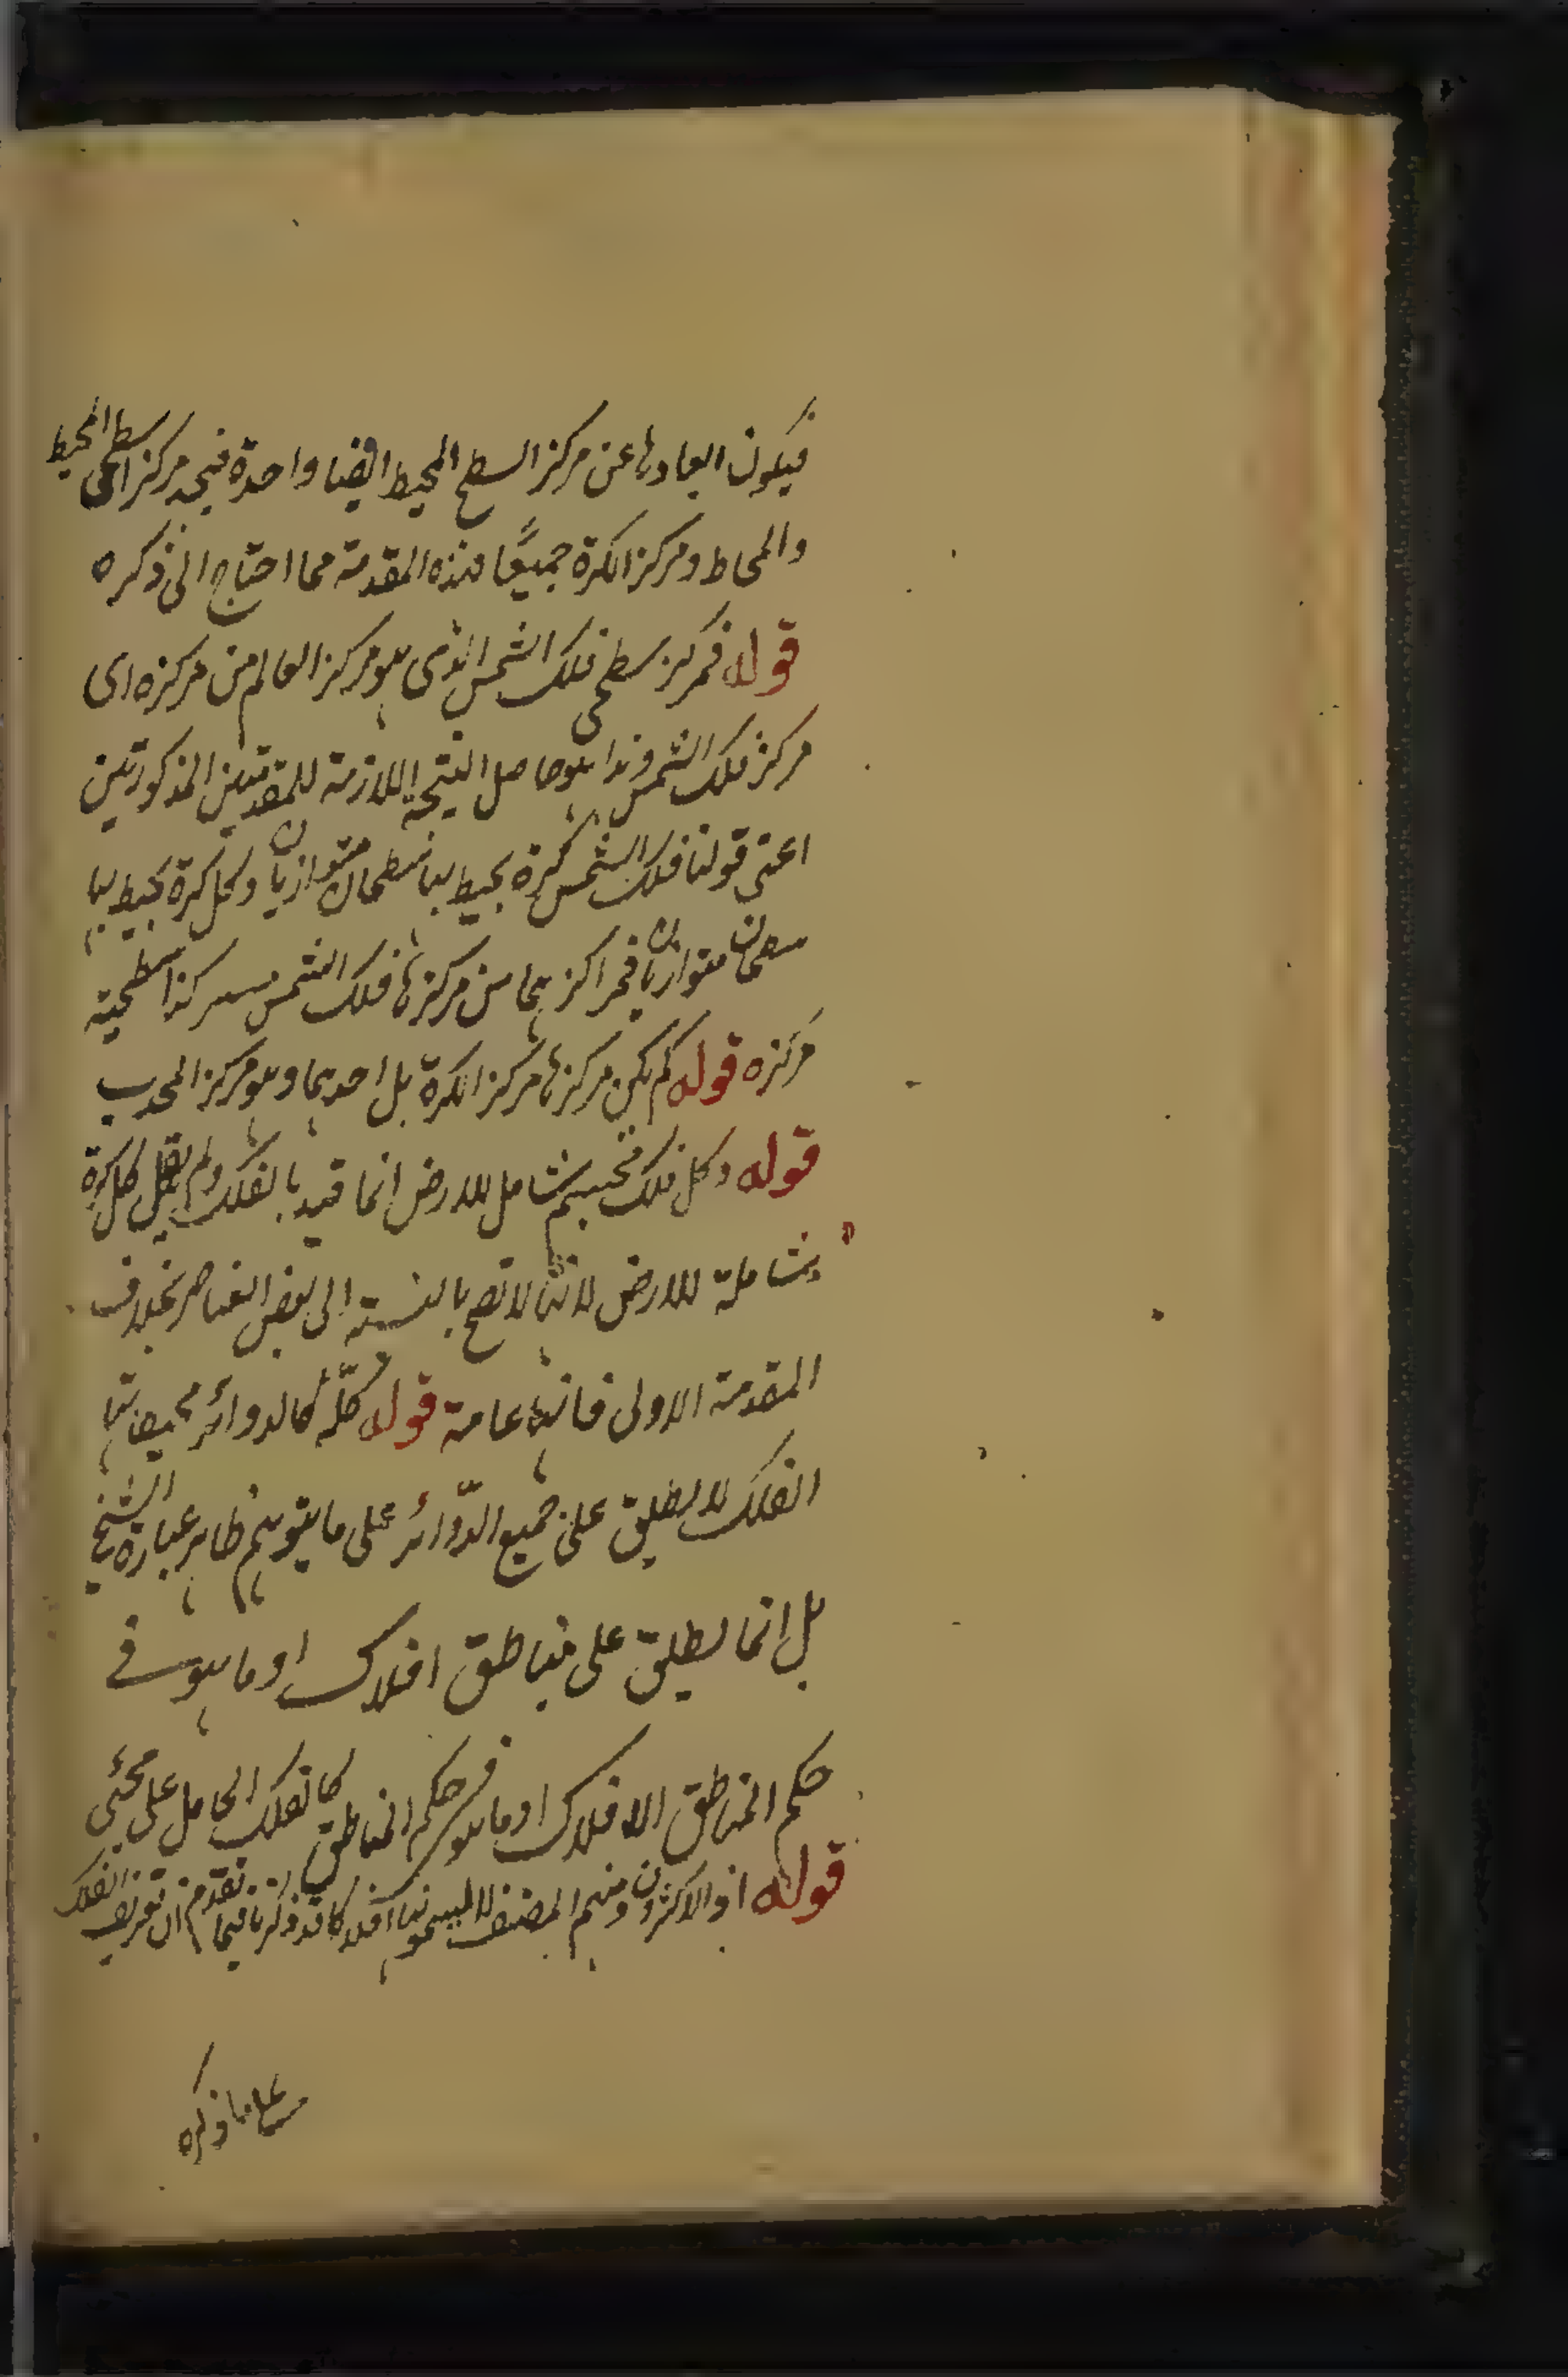 فيكون ابعادها عن مركز السطح المحيط ايضا واحدة فيتحد مركز السطحى المحيط
والمحاط ومركز الكرة جميعًا فهذه المقدمة مما احتاج الى ذكره
قوله فمركز سطحى فلك الشمس الذى هو مركز العالم من مركزه اى
مركز فلك الشمس وهذا هو حاصل النتيجة اللازمة للمقدمتين المذكورتين
اعنى قولنا فلك الشمس كرة يحيط بها سطحان متوازيان وكل كرة يحيط بها
سطحان متوازيان فمراكزهما من مركزها فلك الشمس مركزا سطحيه
مركزه قوله لم يكن مركزها مركز الكرة بل احدهما وهو مركز المحدب
قوله وكل فلك مجسم شامل للارض انما قيد بالفلك ولم يقل كل كرة
شاملة للارض لانها لا تصح بالنسبة الى بعض العناصر بخلاف
المقدمة الاولى فانها عامة قوله كلّه كالدوائر محيطاتها
الفلك لا يطلق على جميع الدّوائر على ما يتوهم ظاهر عبارة الشيخ
بل انما يطلق على مناطق افلاك او ما هو فى
حكم المناطق الافلاك او ما هو فى حكم المناطق كالفلك الحامل على
قوله اذ الاكثرون ومنهم المصنف لا يسمونها افلاكا قد ذكرنا فيما تقدم ان تعريف الفلك
على ما ذكره